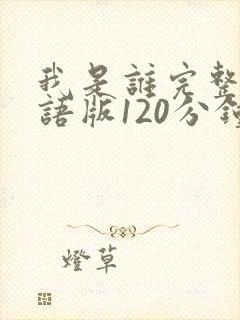 我是誰完整
語版120分鐘
燈草